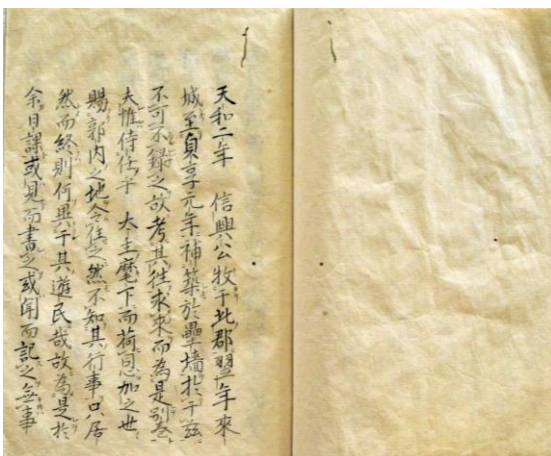 天和二年　信興公牧于此郡翌年來
城至貞享元年補築於壘墻於于玆
不可不録之故考其徃求來而為是別巻
夫惟侍在乎　大主麾下而荷恩加之世
賜郭内之地令住之然不知其行事只居
然而終則何異于其遊民哉故為是於
余日課或見而書之或聞而記之無事